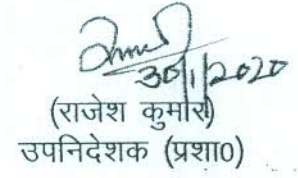 30/1/2020
(राजेश कुमार)
उपनिदेशक (प्रशा0)